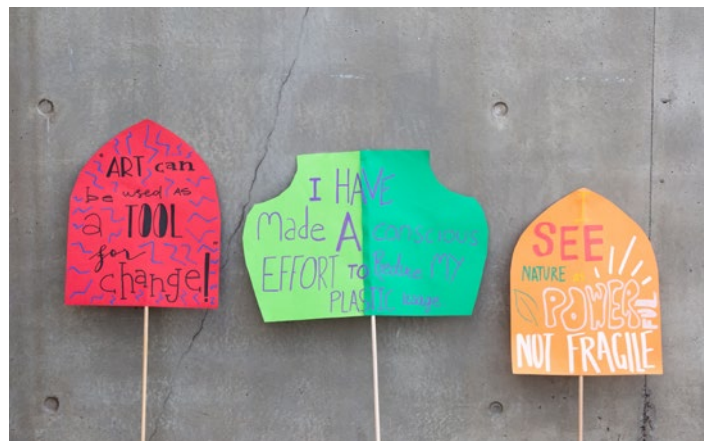 "ART can
be used AS
a TOOL
for
change!"
I HAVE
Made A conscious
EFFORT TO Reduce MY
PLASTIC usage
SEE
NATURE as
POWERFUL
NOT FRAGILE